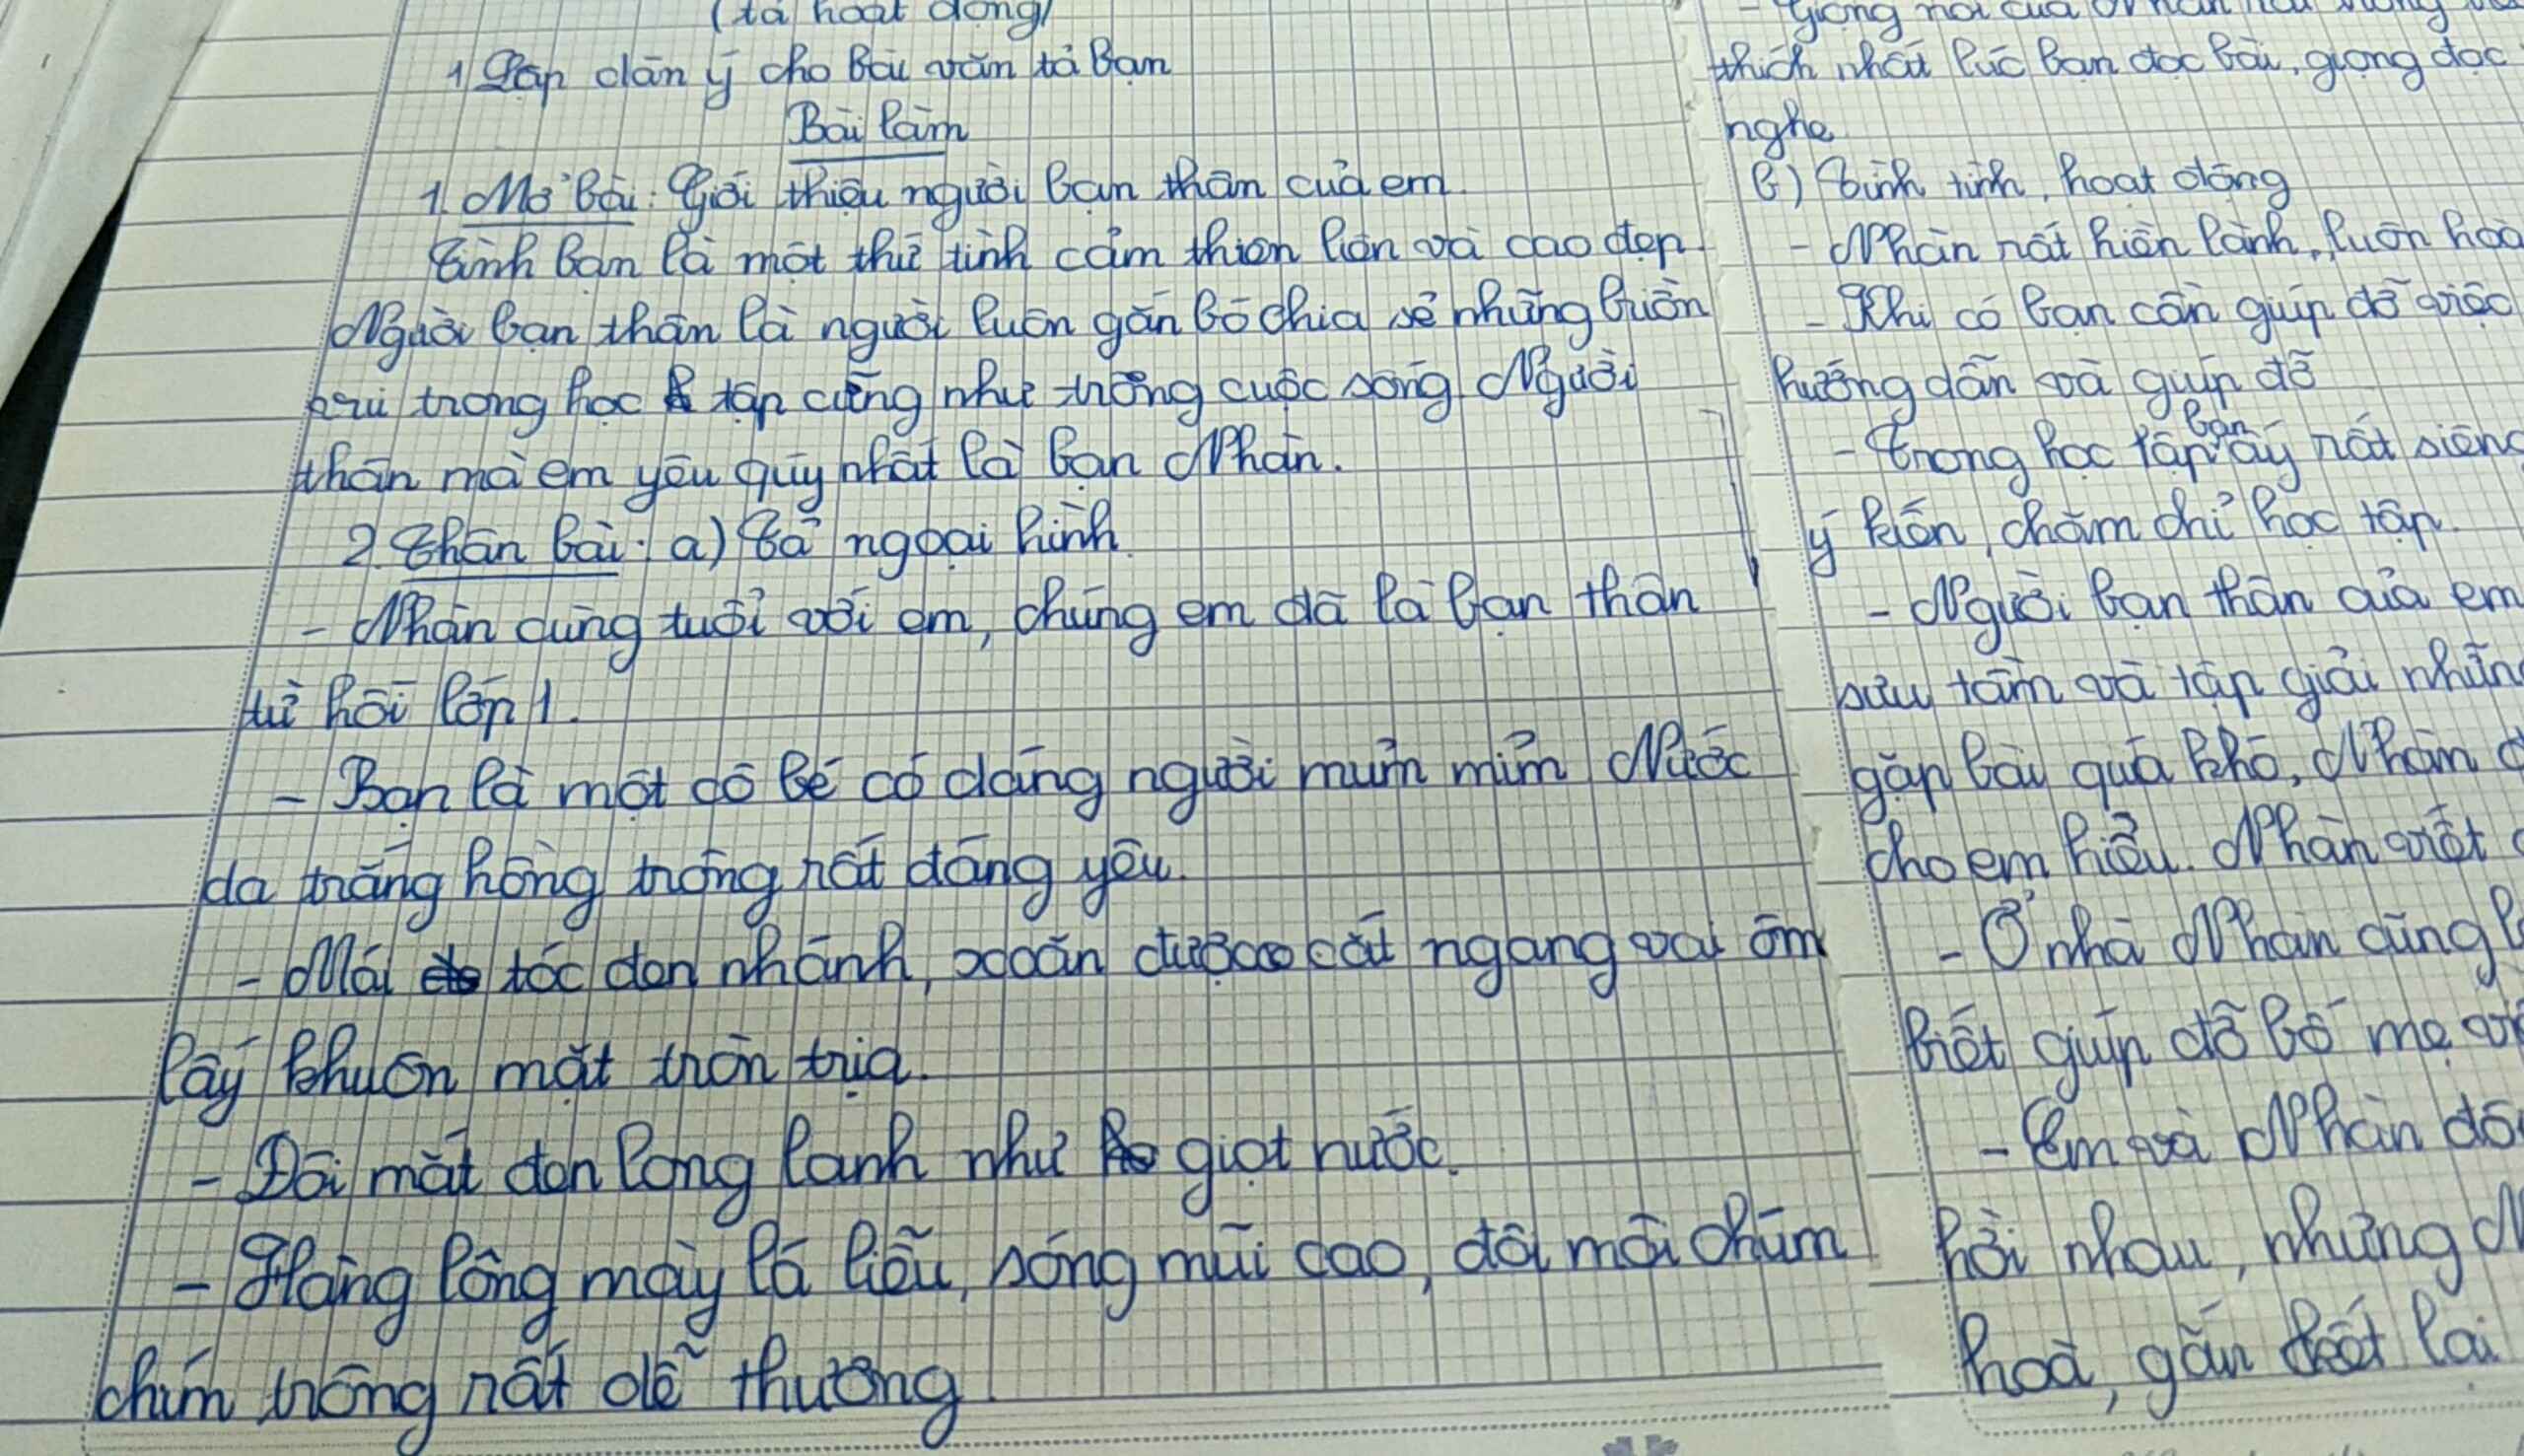 (tả hoạt động)
1 Lập dàn ý cho bài văn tả bạn
Bài làm
1. Mở bài: Giới thiệu người bạn thân của em.
Tình bạn là một thứ tình cảm thiên liên và cao đẹp.
Người bạn thân là người luôn gắn bó chia sẻ những buồn
vui trong học tập cũng như trong cuộc sống. Người
thân mà em yêu quý nhất là bạn Nhàn.
2. Thân bài: a) Tả ngoại hình.
- Nhàn cùng tuổi với em, chúng em đã là bạn thân
từ hồi lớp 1.
- Bạn là một cô bé có dáng người mũm mĩm. Nước
da trắng hồng trông rất đáng yêu.
- Mái tóc đen nhánh, xoăn được cắt ngang vai ôm
lấy khuôn mặt tròn trịa.
- Đôi mắt đen long lanh như giọt nước.
- Hàng lông mày lá liễu, sóng mũi cao, đôi môi chúm
chím trông rất dễ thương.
- Giọng nói của
thích nhất lúc bạn đọc bài, giọng đọc
nghe
b) Tính tình, hoạt động
- Nhàn rất hiền lành, luôn hoà
- Khi có bạn cần giúp đỡ việc
hướng dẫn và giúp đỡ
- Trong học tập bạn ấy rất siêng
ý kiến, chăm chỉ học tập.
- Người bạn thân của em
sưu tầm và tập giải
gặp bài quá khó, Nhàn
cho em hiểu. Nhàn viết
- Ở nhà Nhàn cũng
biết giúp đỡ bố mẹ
- Em và Nhàn
hỏi nhau, nhưng
hoà, gắn kết lại